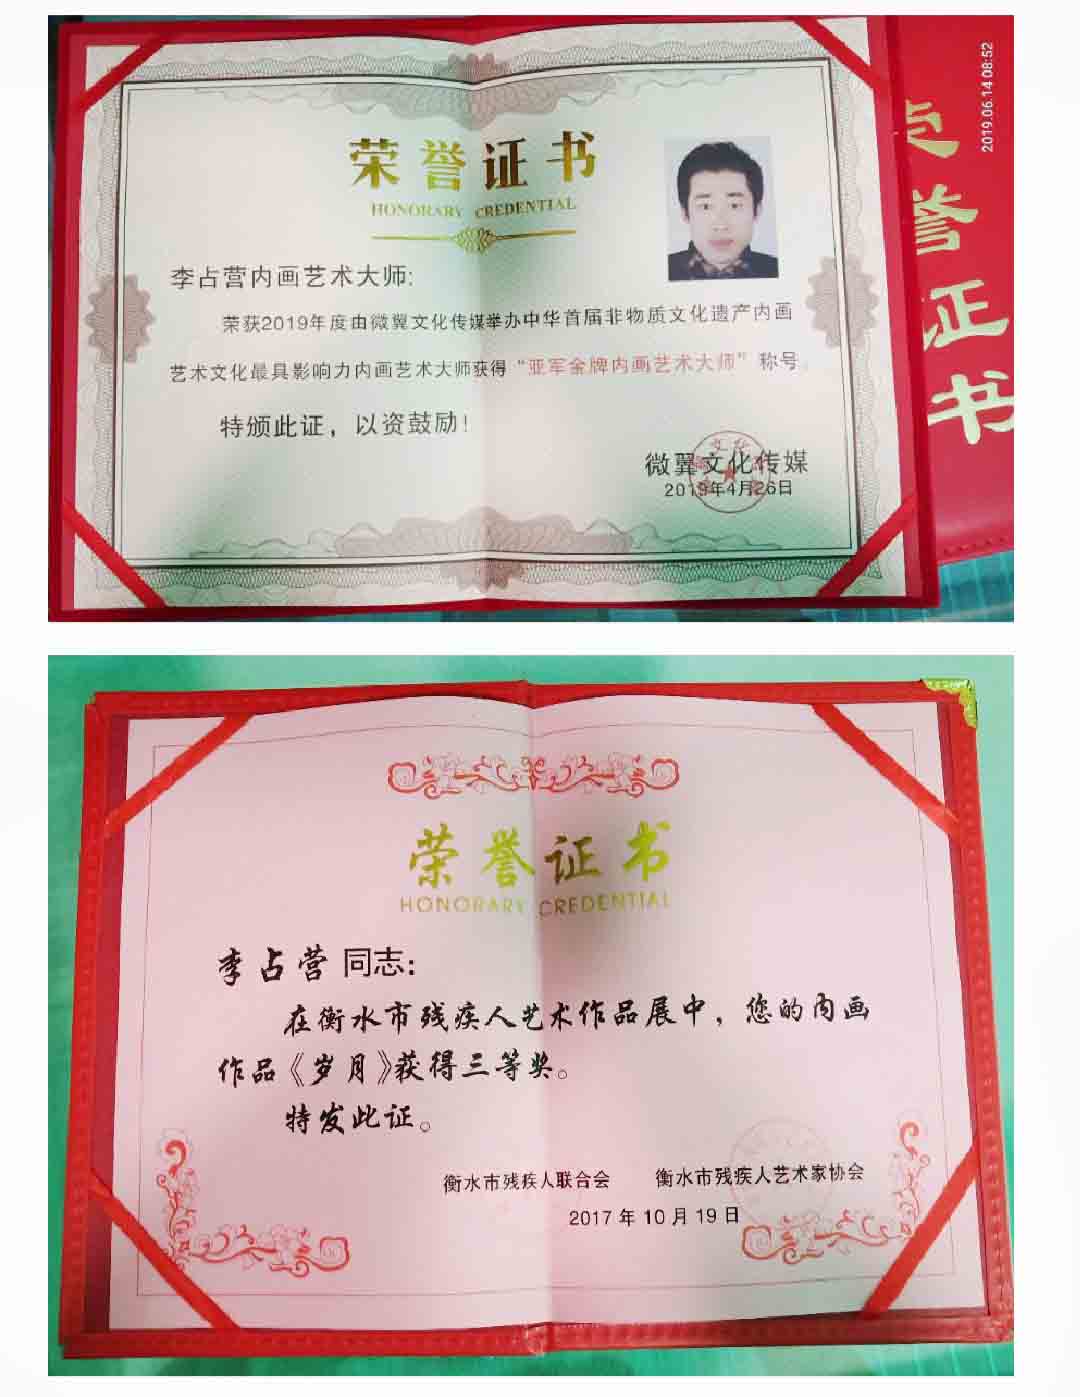 荣誉证书
HONORARY CREDENTIAL
李占营内画艺术大师:
荣获2019年度由微翼文化传媒举办中华首届非物质文化遗产内画
艺术文化最具影响力内画艺术大师获得“亚军金牌内画艺术大师”称号。
特颁此证，以资鼓励！
微翼文化传媒
2019年4月26日
2019.06.14 08:52
荣誉证书
荣誉证书
HONORARY CREDENTIAL
李占营 同志：
在衡水市残疾人艺术作品展中，您的内画
作品《岁月》获得三等奖。
特发此证。
衡水市残疾人联合会 衡水市残疾人艺术家协会
2017 年 10 月 19 日